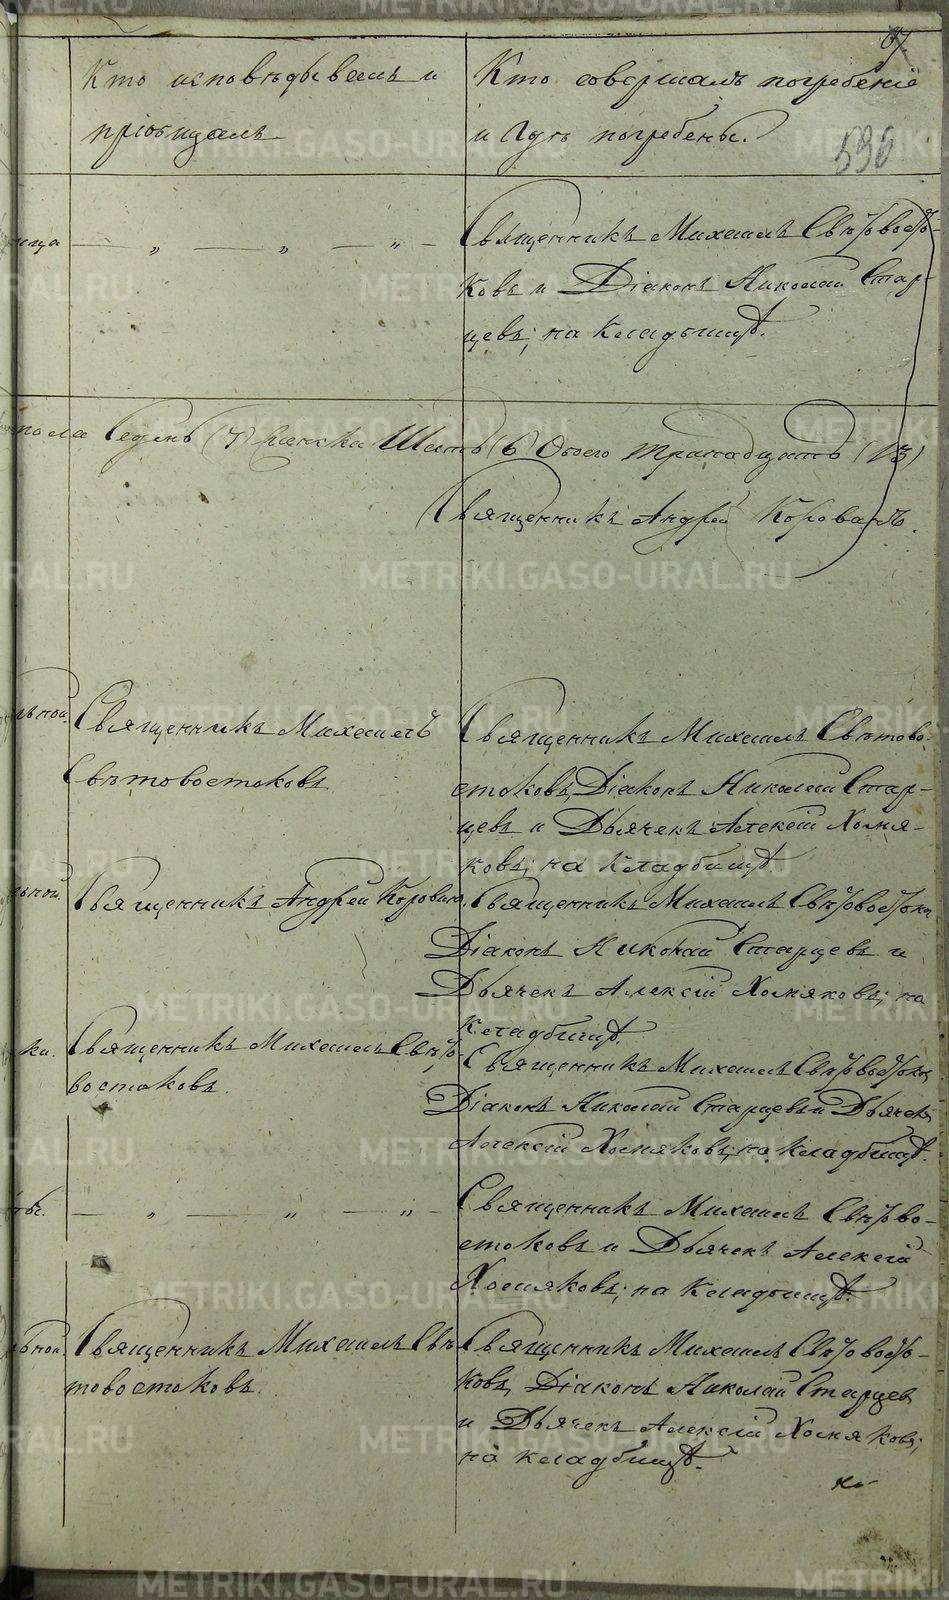 87.
596
Кто исповѣдывалъ и
пріобщалъ
Кто совершалъ погребеніе
и гдѣ погребены.
— „ — „ — „ —
Священникъ Михаилъ Свѣтовосто-
ковъ и Діаконъ Николай Стар-
цевъ; на кладбищѣ.
пола Седмь (7) женска Шесть (6) Обоего тринадцать (13)
Священникъ Андрей Коровинъ.
льной.
Священникъ Михаилъ
Свѣтовостоковъ.
Священникъ Михаилъ Свѣтово-
стоковъ, Діаконъ Николай Стар-
цевъ и Дьячекъ Алексій Хомя-
ковъ; на кладбищѣ.
льной.
Священникъ Андрей Коровинъ.
Священникъ Михаилъ Свѣтовостоковъ
Діаконъ Николай Старцевъ и
Дьячекъ Алексій Хомяковъ; на
кладбищѣ.
ка.
Священникъ Михаилъ Свѣто-
востоковъ.
Священникъ Михаилъ Свѣтовостоковъ
Діаконъ Николай Старцевъ и Дьячекъ
Алексій Хомяковъ; на кладбищѣ.
— „ — „ — „ —
Священникъ Михаилъ Свѣтово-
стоковъ и Дьячекъ Алексій
Хомяковъ; на кладбищѣ.
ьной.
Священникъ Михаилъ Свѣ-
товостоковъ.
Священникъ Михаилъ Свѣтовосто-
ковъ, Діаконъ Николай Старцевъ
и Дьячекъ Алексій Хомяковъ;
на кладбищѣ.
METRIKI.GASO-URAL.RU